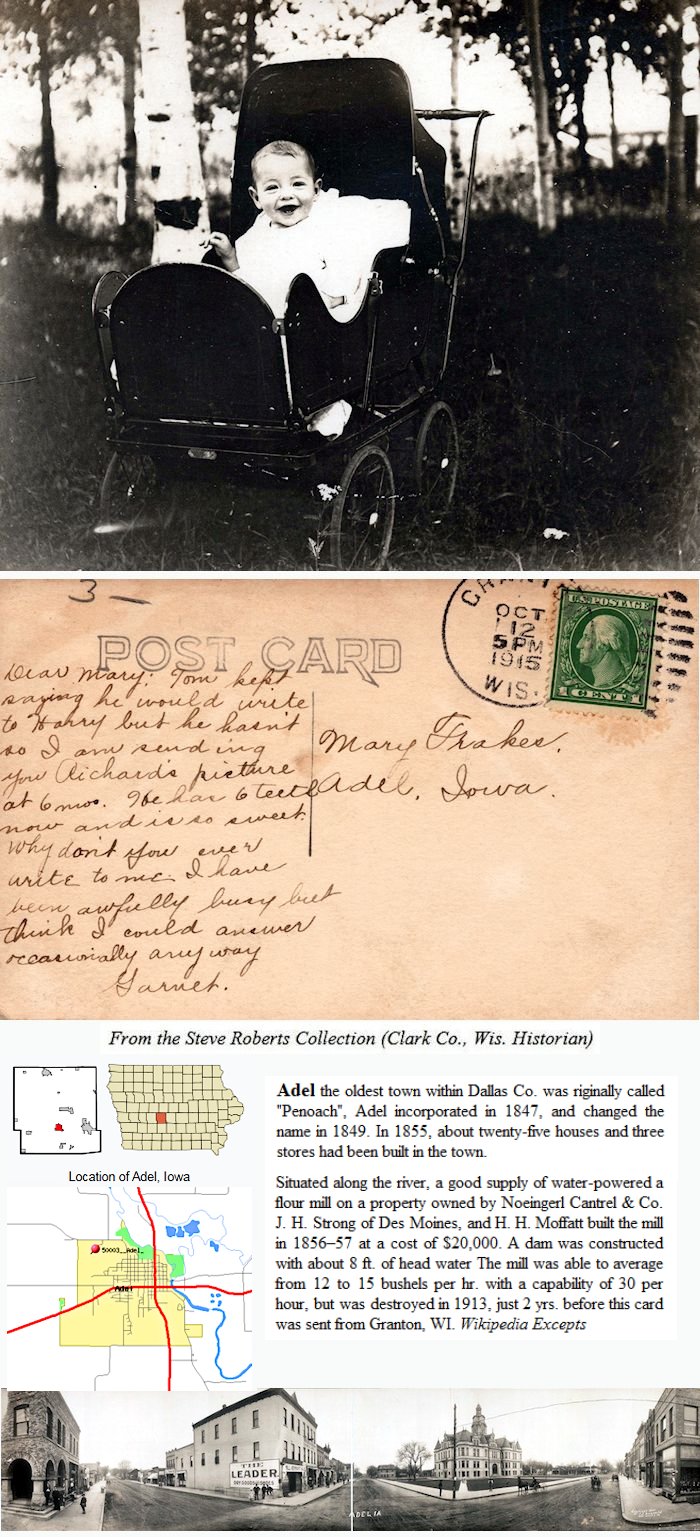 3 —
POST CARD
OCT
12
5 PM
1915
WIS.
U.S. POSTAGE
1 CENT 1
Dear Mary: Tom kept
saying he would write
to Harry but he hasn't
so I am sending
you Richard's picture
at 6 mos. He has 6 teeth
now and is so sweet.
Why don't you ever
write to me. I have
been awfully busy but
think I could answer
occasionally any way
Garnet.
Mary Frakes.
Adel, Iowa.
From the Steve Roberts Collection (Clark Co., Wis. Historian)
Location of Adel, Iowa
50003, Adel,
Adel
Adel the oldest town within Dallas Co. was riginally called
"Penoach", Adel incorporated in 1847, and changed the
name in 1849. In 1855, about twenty-five houses and three
stores had been built in the town.
Situated along the river, a good supply of water-powered a
flour mill on a property owned by Noeingerl Cantrel & Co.
J. H. Strong of Des Moines, and H. H. Moffatt built the mill
in 1856–57 at a cost of $20,000. A dam was constructed
with about 8 ft. of head water The mill was able to average
from 12 to 15 bushels per hr. with a capability of 30 per
hour, but was destroyed in 1913, just 2 yrs. before this card
was sent from Granton, WI. Wikipedia Excepts
THE
LEADER
DRY GOODS & SHOES
ADEL IA